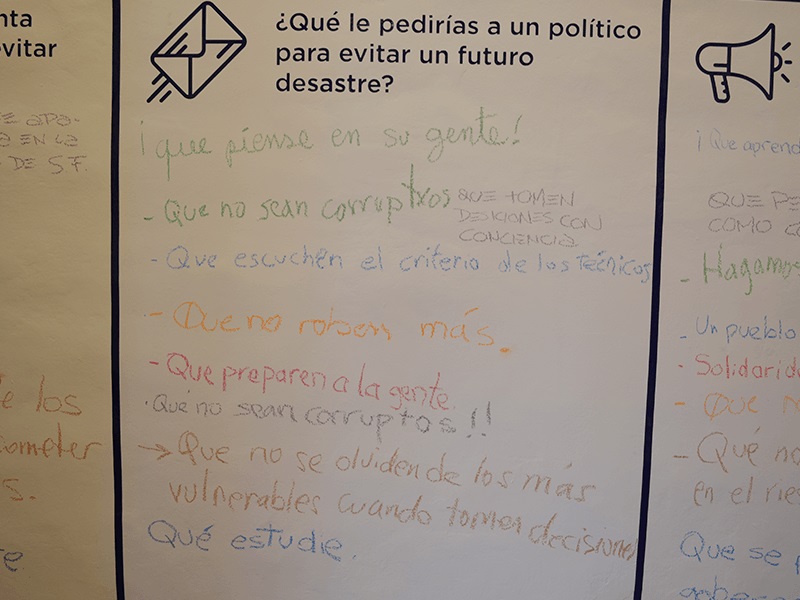 nta
evitar
E APA-
A EN LA
DE S.F.
e los
cometer
s.
te
¿Qué le pedirías a un político
para evitar un futuro
desastre?
¡que piense en su gente!
- Que no sean corruptros
QUE TOMEN
DESICIONES CON
CONCIENCIA.
- Que escuchën el criterio de los Técnicos
- Que no roben más.
- Que preparen a la gente.
· Qué no sean corruptos!!
→ Que no se olviden de los más
vulnerables cuando tomen decisiones
Qué estudie.
¡Que aprend
QUE PE
COMO C
- Hagamos
- Un pueblo
· Solidarid
- QUE N
- Qué no
en el ries
Que se p